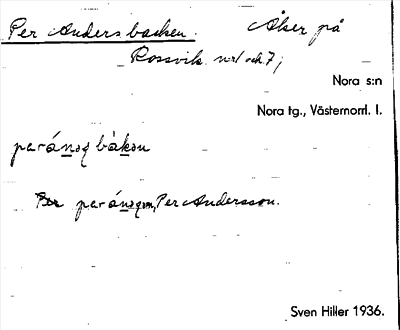 Per Anders backen. Åker på
Rossvik. nr 1 och 7;
Nora s:n
Nora tg., Västernorrl. l.
paránǝʂ bàkǝn
Per Andersson.
Sven Hiller 1936.